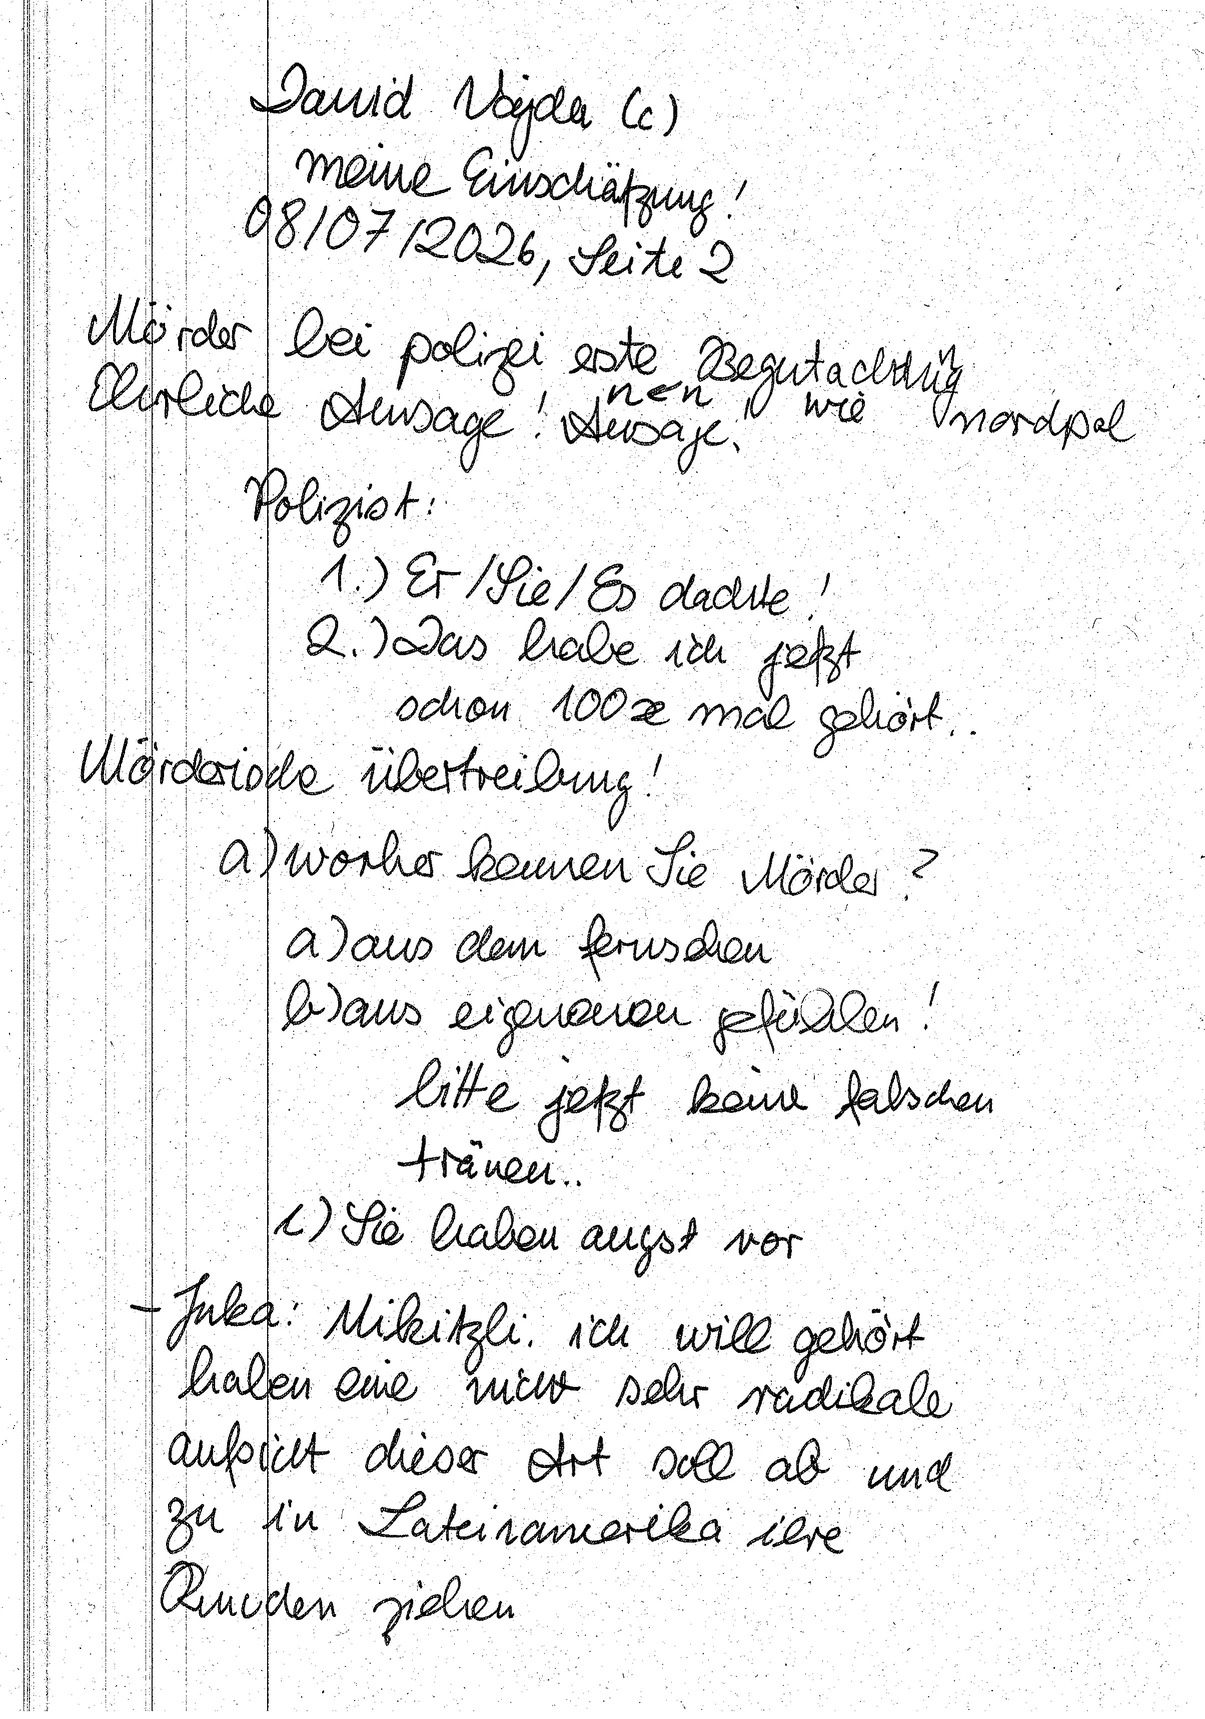 David Vajda (c)
meine Einschätzung!
08/07/2026, Seite 2
Mörder bei polizei erste Begutachtung
Ehrliche Aussage! Aussage! wie nordpol
nen
Polizist:
1.) Er/Sie/Es dachte!
2.) Das habe ich jetzt
schon 100x mal gehört..
Mörderische übertreibung!
a) worher kennen Sie Mörder?
a) aus dem fernsehen
b) aus eigeneren gefühlen!
bitte jetzt keine falschen
tränen..
c) Sie haben angst vor
- Juka: Mikitzli. ich will gehört
haben eine nicht sehr radikale
aufsicht dieser Art soll ab und
zu in Lateinamerika ihre
Runden ziehen